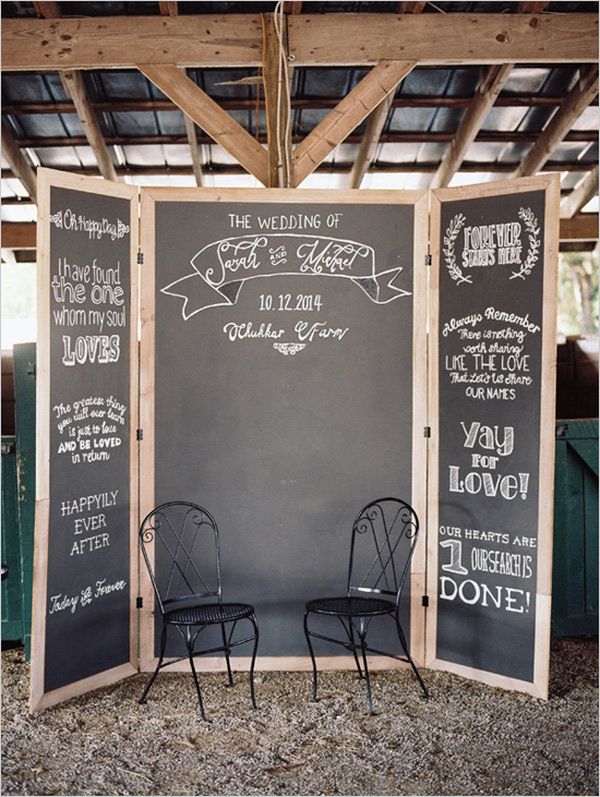 Oh Happy Day
I have found
the one
whom my soul
LOVES
The greatest thing
you will ever learn
is just to love
AND BE LOVED
in return
HAPPILY
EVER
AFTER
Today & Forever
THE WEDDING OF
Sarah AND Michael
10.12.2014
Chukkar Farm
FOREVER
STARTS HERE
Always Remember
There is nothing
worth sharing
LIKE THE LOVE
That Let's Us Share
OUR NAMES
Yay
for
Love!
OUR HEARTS ARE
1 OUR SEARCH IS
DONE!